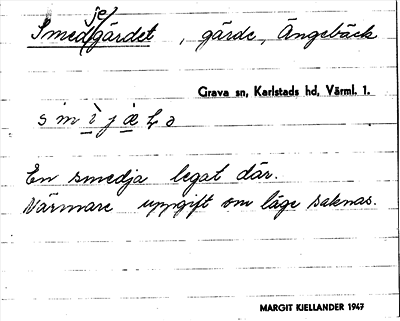 Smedjegärdet, gärde, Ängebäck
Grava sn, Karlstads hd, Värml. 1.
En smedja legat där.
Närmare uppgift om läge saknas.
MARGIT KJELLANDER 1947